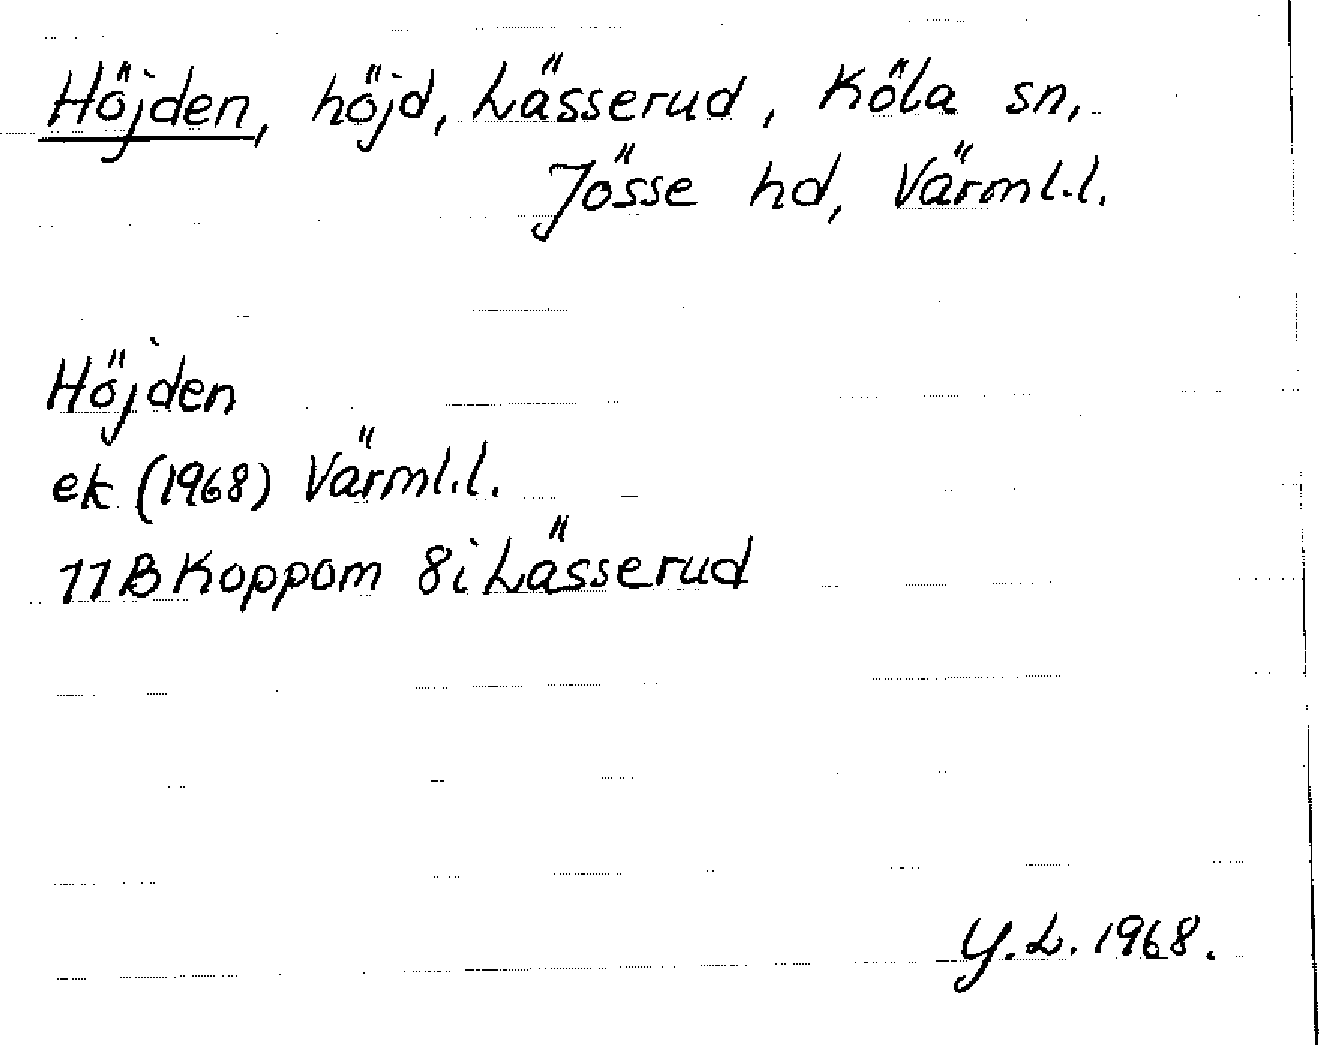 Höjden, höjd, Lässerud, Köla sn,
Jösse hd, Värml.l.
Höjden
ek (1968) Värml.l.
11B Koppom 8i Lässerud
Y.L. 1968.